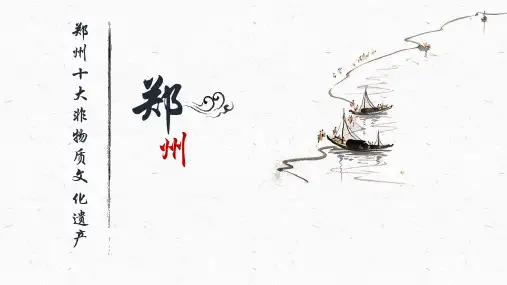 郑州十大非物质文化遗产
郑
州